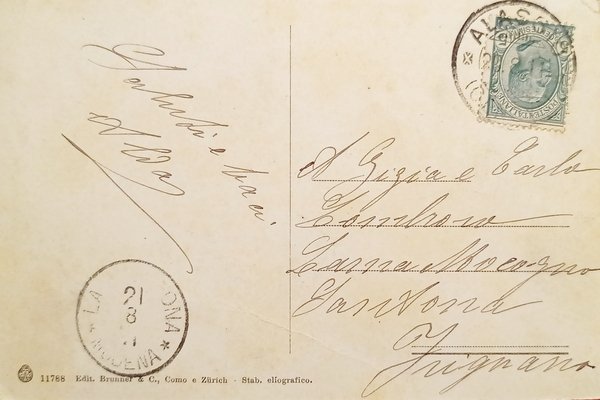 Saluti e baci
Alda
A Gigia e Carlo
Lama Mocogno
Santona
Frignano
ALASSIO
POSTE ITALIANE
LA ONA
21
8
MODENA
11788 Edit. Brunner & C., Como e Zürich - Stab. eliografico.